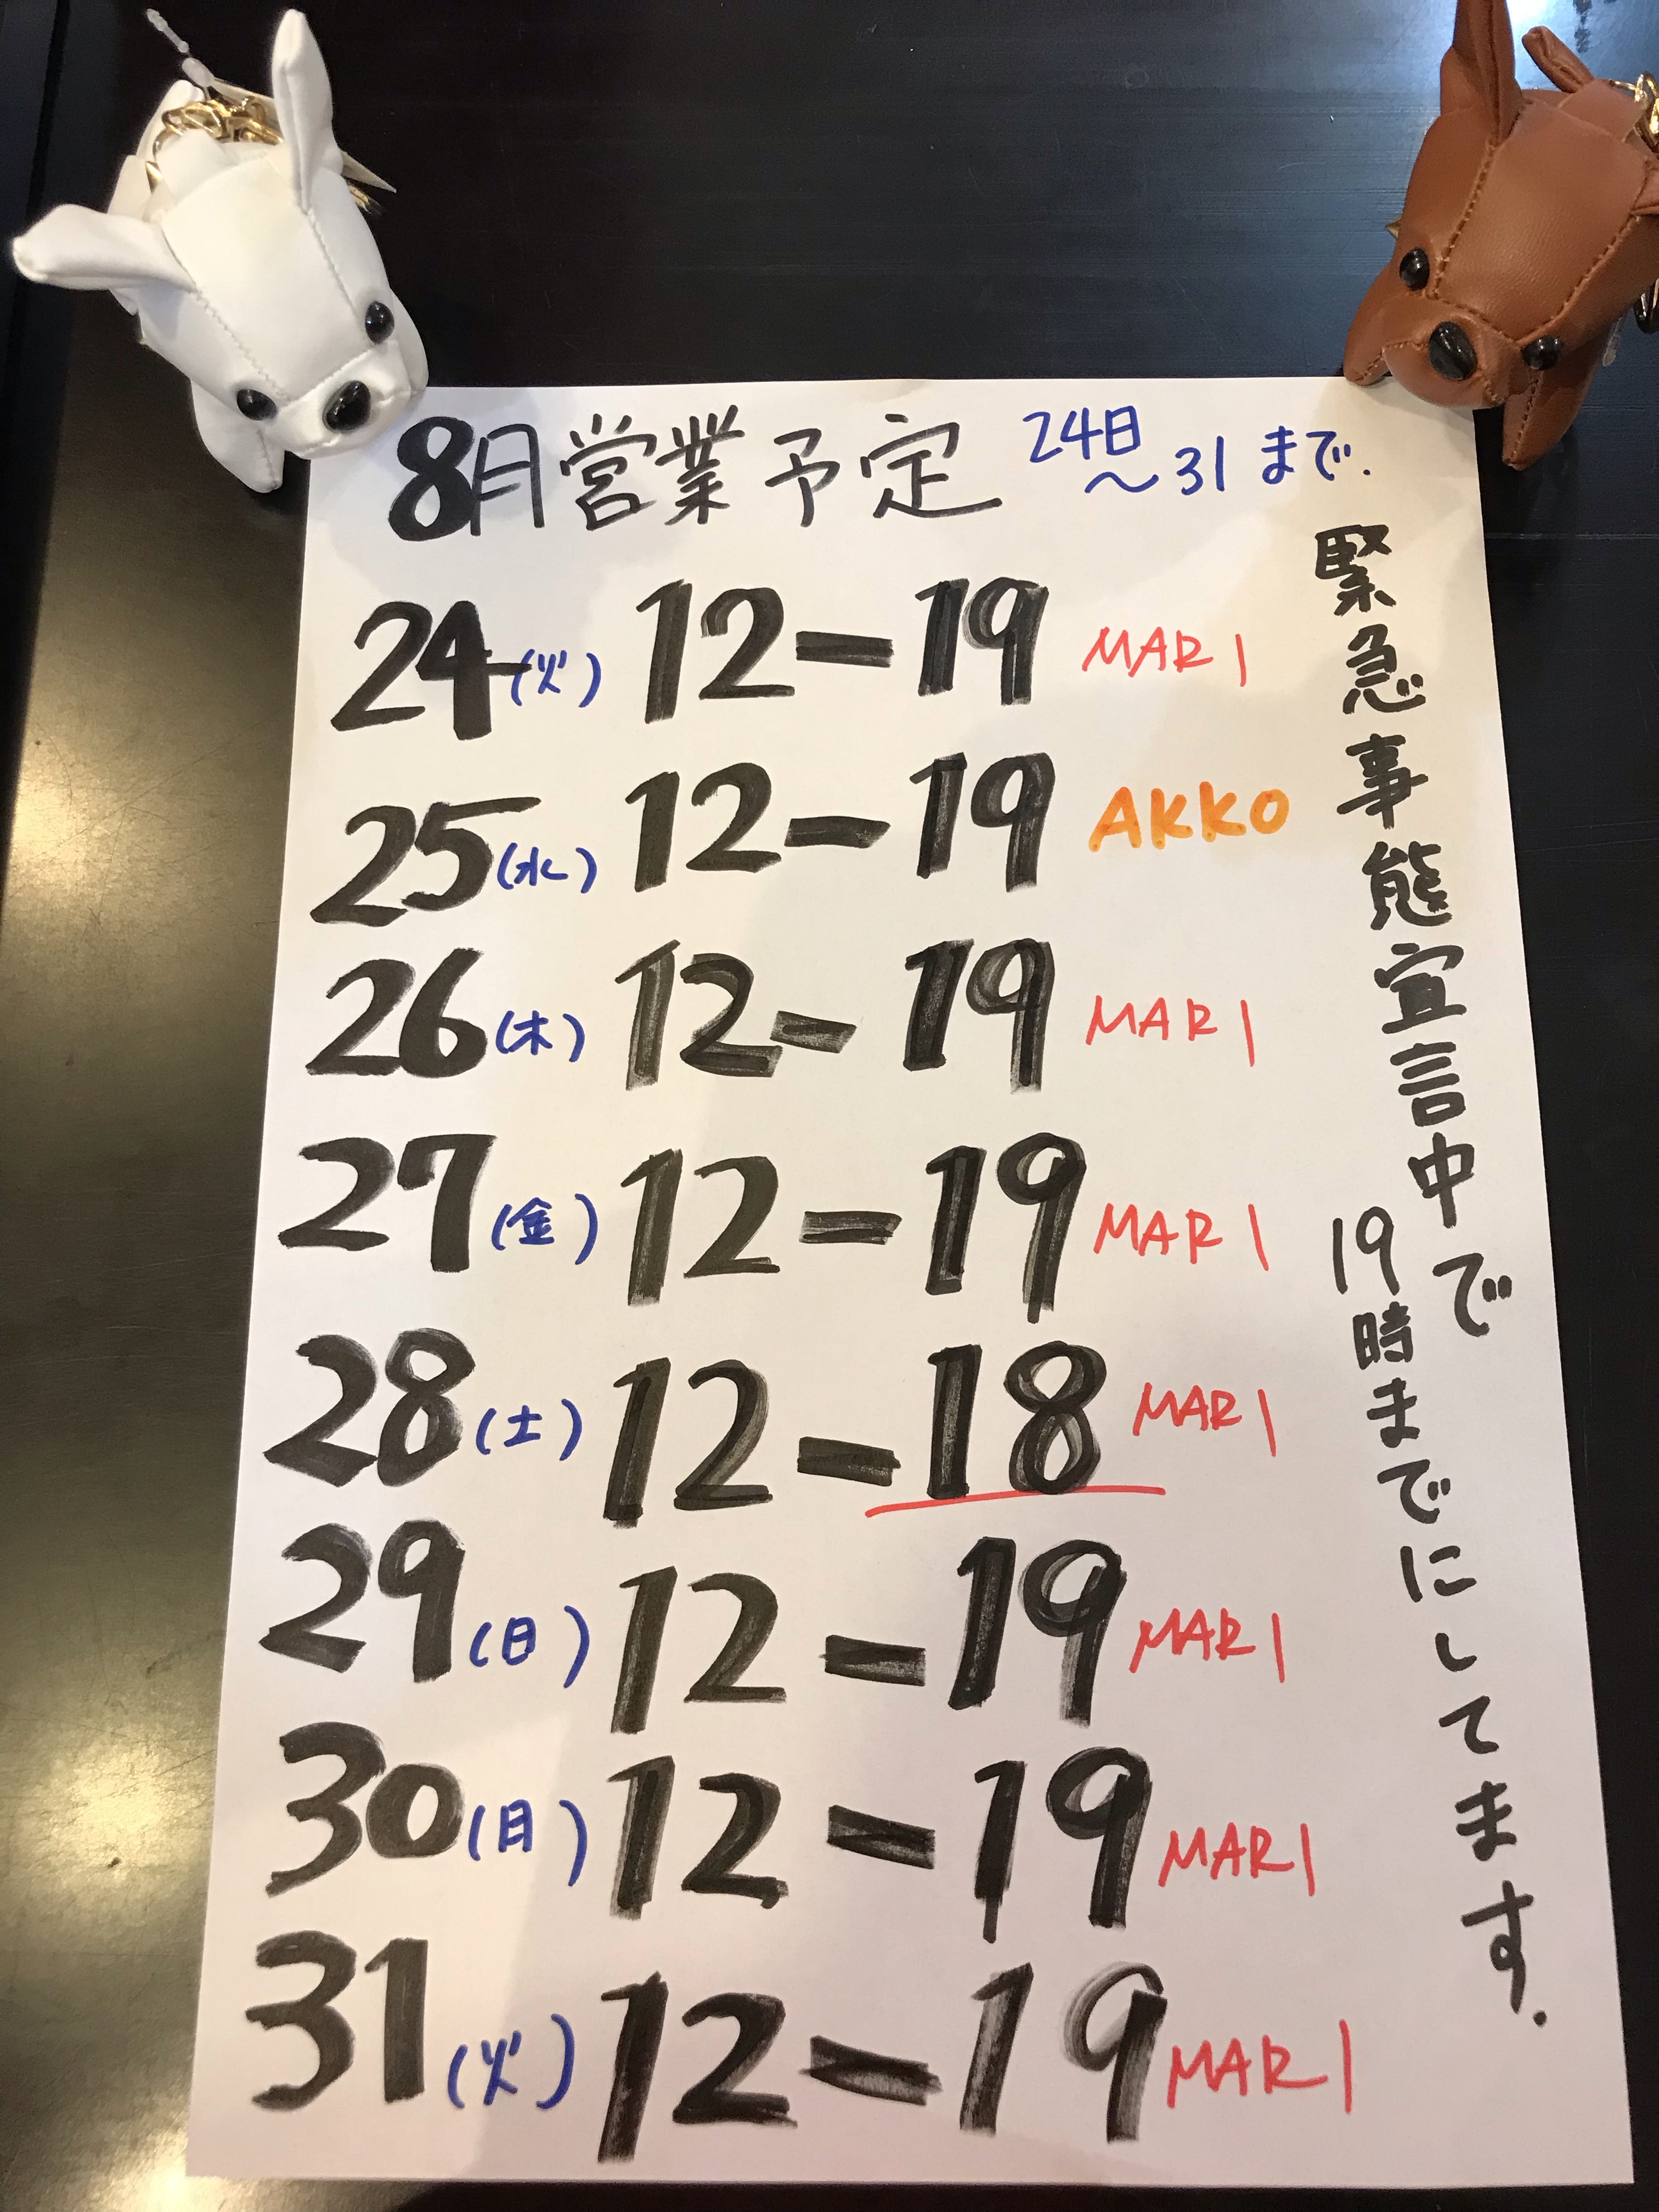 8月営業予定 24日
～31まで.
24(火) 12-19 MARI
25(水) 12-19 AKKO
26(木) 12-19 MARI
27(金) 12-19 MARI
28(土) 12-18 MARI
29(日) 12-19 MARI
30(月) 12-19 MARI
31(火) 12-19 MARI
緊急事態宣言中で
19時までにしてます.